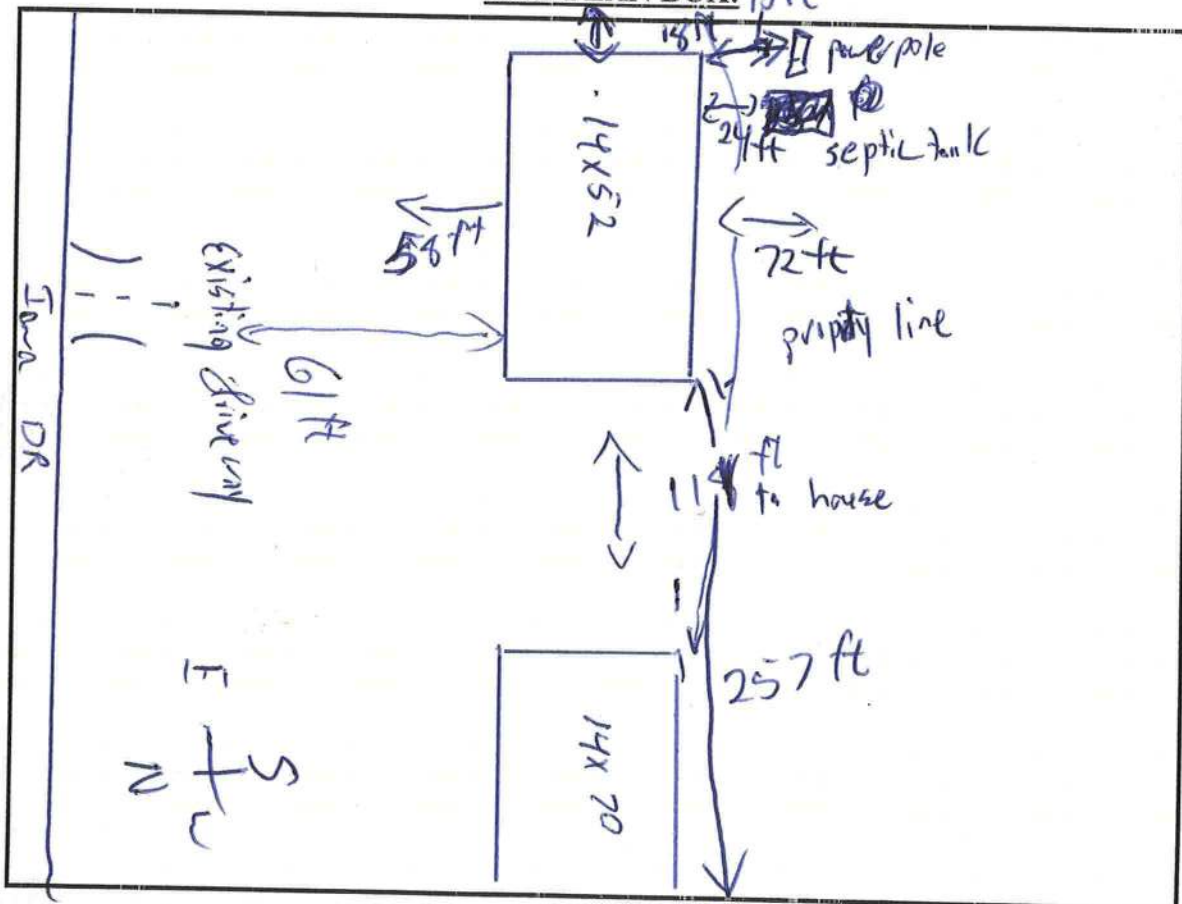 BOX:
18 ft
power pole
24 ft
septic tank
14x52
58 ft
72 ft
property line
Existing driveway
61 ft
DR
ft
to house
257 ft
14x70
E
S
N